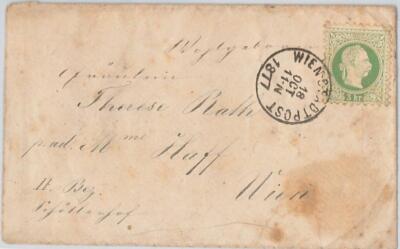 Wohlgeboren
Fräulein
Therese Rath
pad. Mme Haff
Wien
II. Bez.
Schüttenhof
WIEN STADTPOST
18
OCT
11-N
1877
3 kr